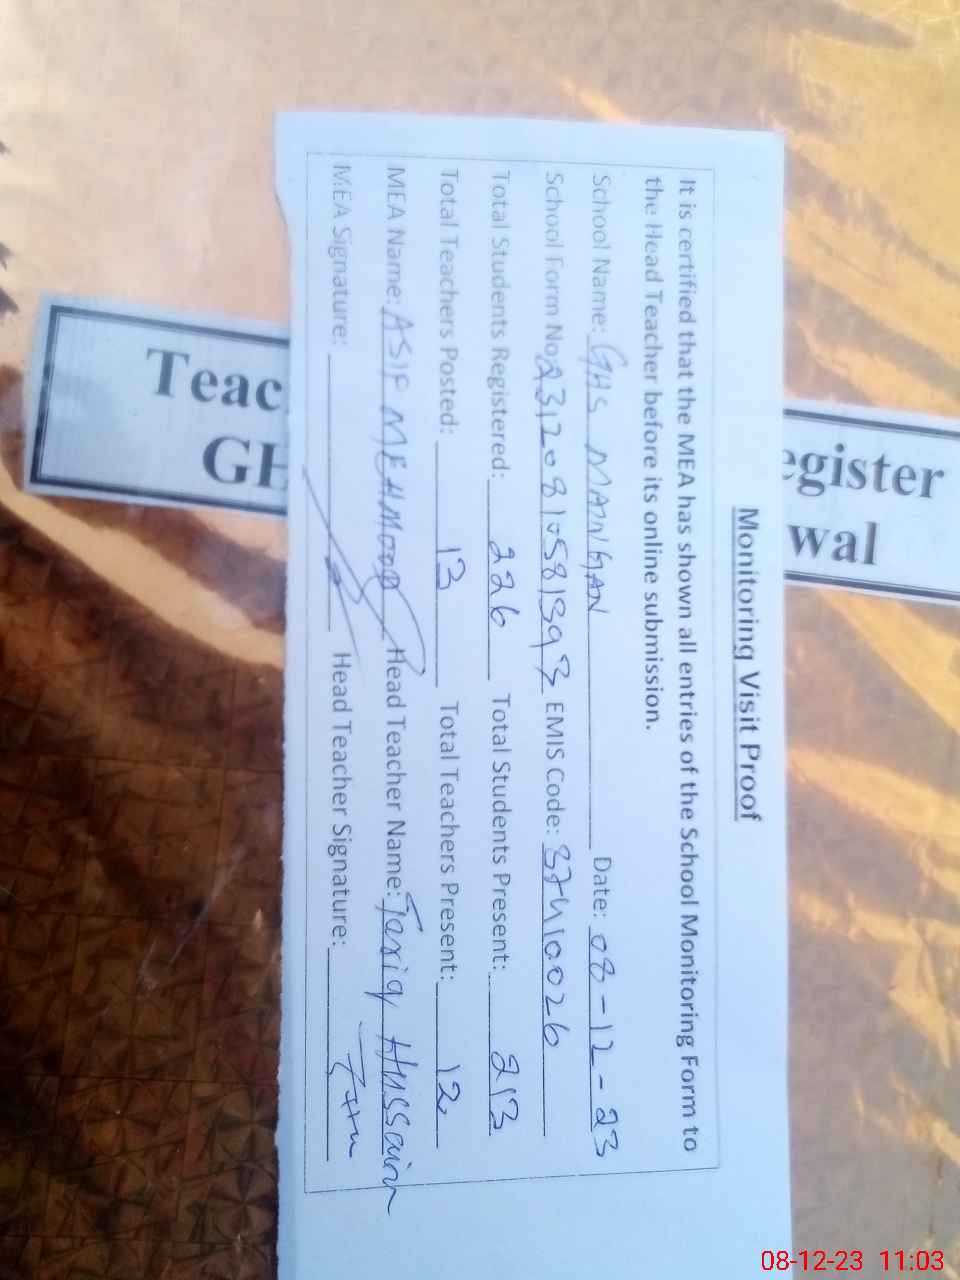 Monitoring Visit Proof
It is certified that the MEA has shown all entries of the School Monitoring Form to
the Head Teacher before its online submission.
School Name: GHS MANGAN Date: 08-12-23
School Form No: EMIS Code: 37410026
Total Students Registered: 226 Total Students Present: 213
Total Teachers Posted: 13 Total Teachers Present: 12
MEA Name: ASIF MEHMOOD Head Teacher Name: Tariq Hussain
MEA Signature: Head Teacher Signature:
Teac egister
GH wal
08-12-23 11:03